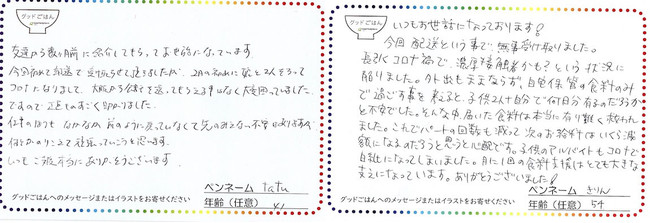 グッドごはん
友達から数ヶ月前に紹介してもらってお世話になっています。
今回初めて配送で受取らせて頂きましたが、2月の初めに娘と2人そろって
コロナになりまして、職場からも休みを
ですので正直ものすごく助かりました。
仕事のほうもなかなか前のように戻っていなくて先のみえない不安はありますが
何とかのりこえて頑張っていこうと思います。
いつもご協力本当にありがとうございます。
グッドごはんへのメッセージまたはイラストをお寄せください
ペンネーム tatu
年齢(任意) 41
グッドごはん
いつもお世話になっております!
今回配送という事で、無事受け取りました。
長引くコロナ禍で、濃厚接触者かも?という状況に
陥りました。外出もままならず、自宅保管の食料のみ
で過ごす事を考えると、子供2人と自分で何日分有るのだろうか
と不安でした。そんな中、届いた食料は本当に有り難く救われ
ました。これでパートの回数も減って次のお給料はいくら減
額になるのだろうと思うと心配です。子供のアルバイトもコロナで
自粛になってしまいました。月に1回の食料支援はとても大きな
支えになっています。ありがとうございました!
グッドごはんへのメッセージまたはイラストをお寄せください
ペンネーム きりん
年齢(任意) 54